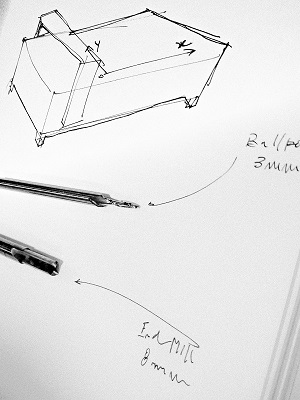 Y
X
Ballpe
3mm
End Mill
8mm